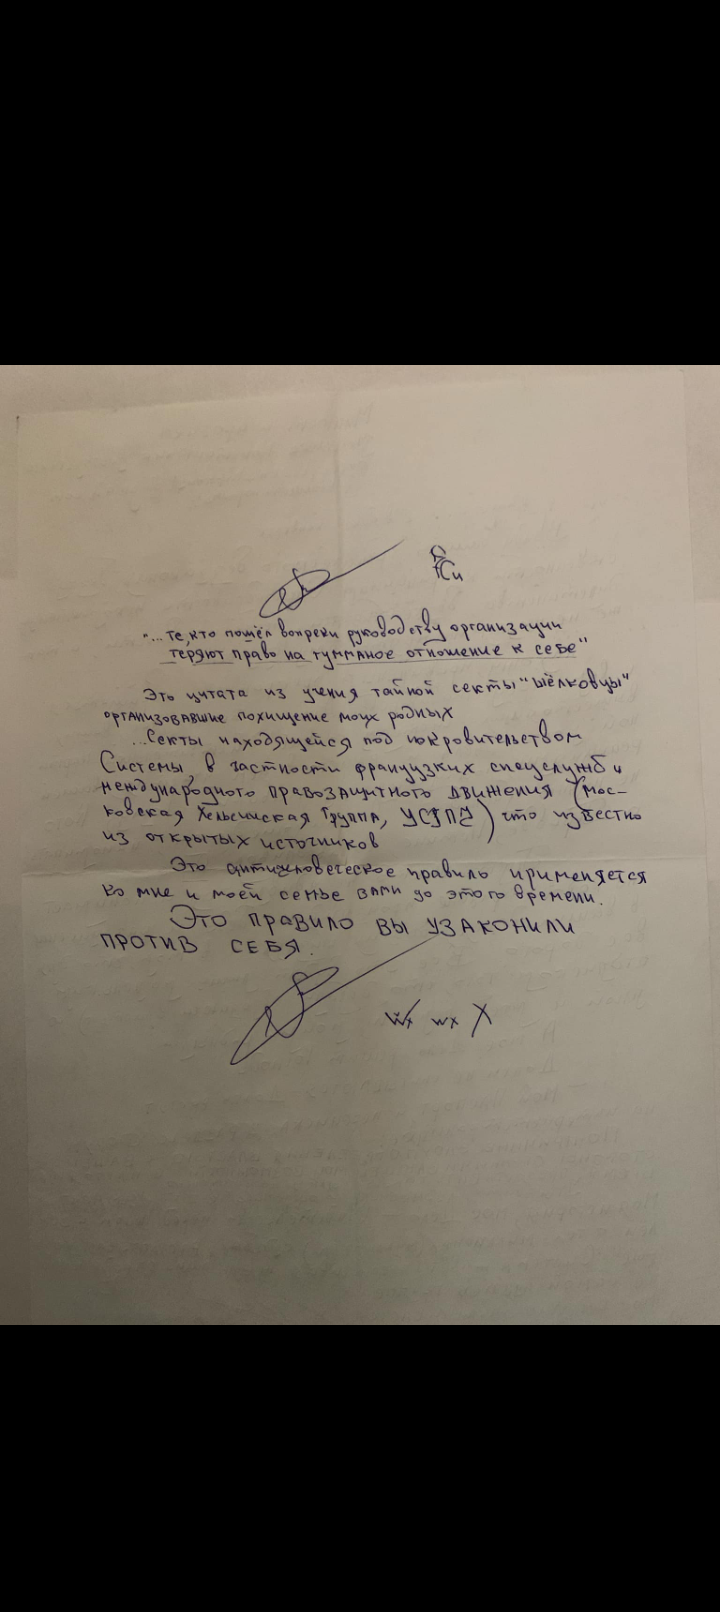 "...те, кто пошёл вопреки руководству организации
теряют право на гумманое отношение к себе"
Это цитата из учения тайной секты "шёлковцы"
организовавшие похищение моих родных
...Секты находящейся под покровительством
Системы, в частности французких спецслужб и
международного правозащитного движения (Мос-
ковская Хельсинская Группа, ) что известно
из открытых источников
Это античеловеческое правило применяется
ко мне и моей семье вами до этого времени.
Это правило вы узаконили
против себя.
Wx wx X